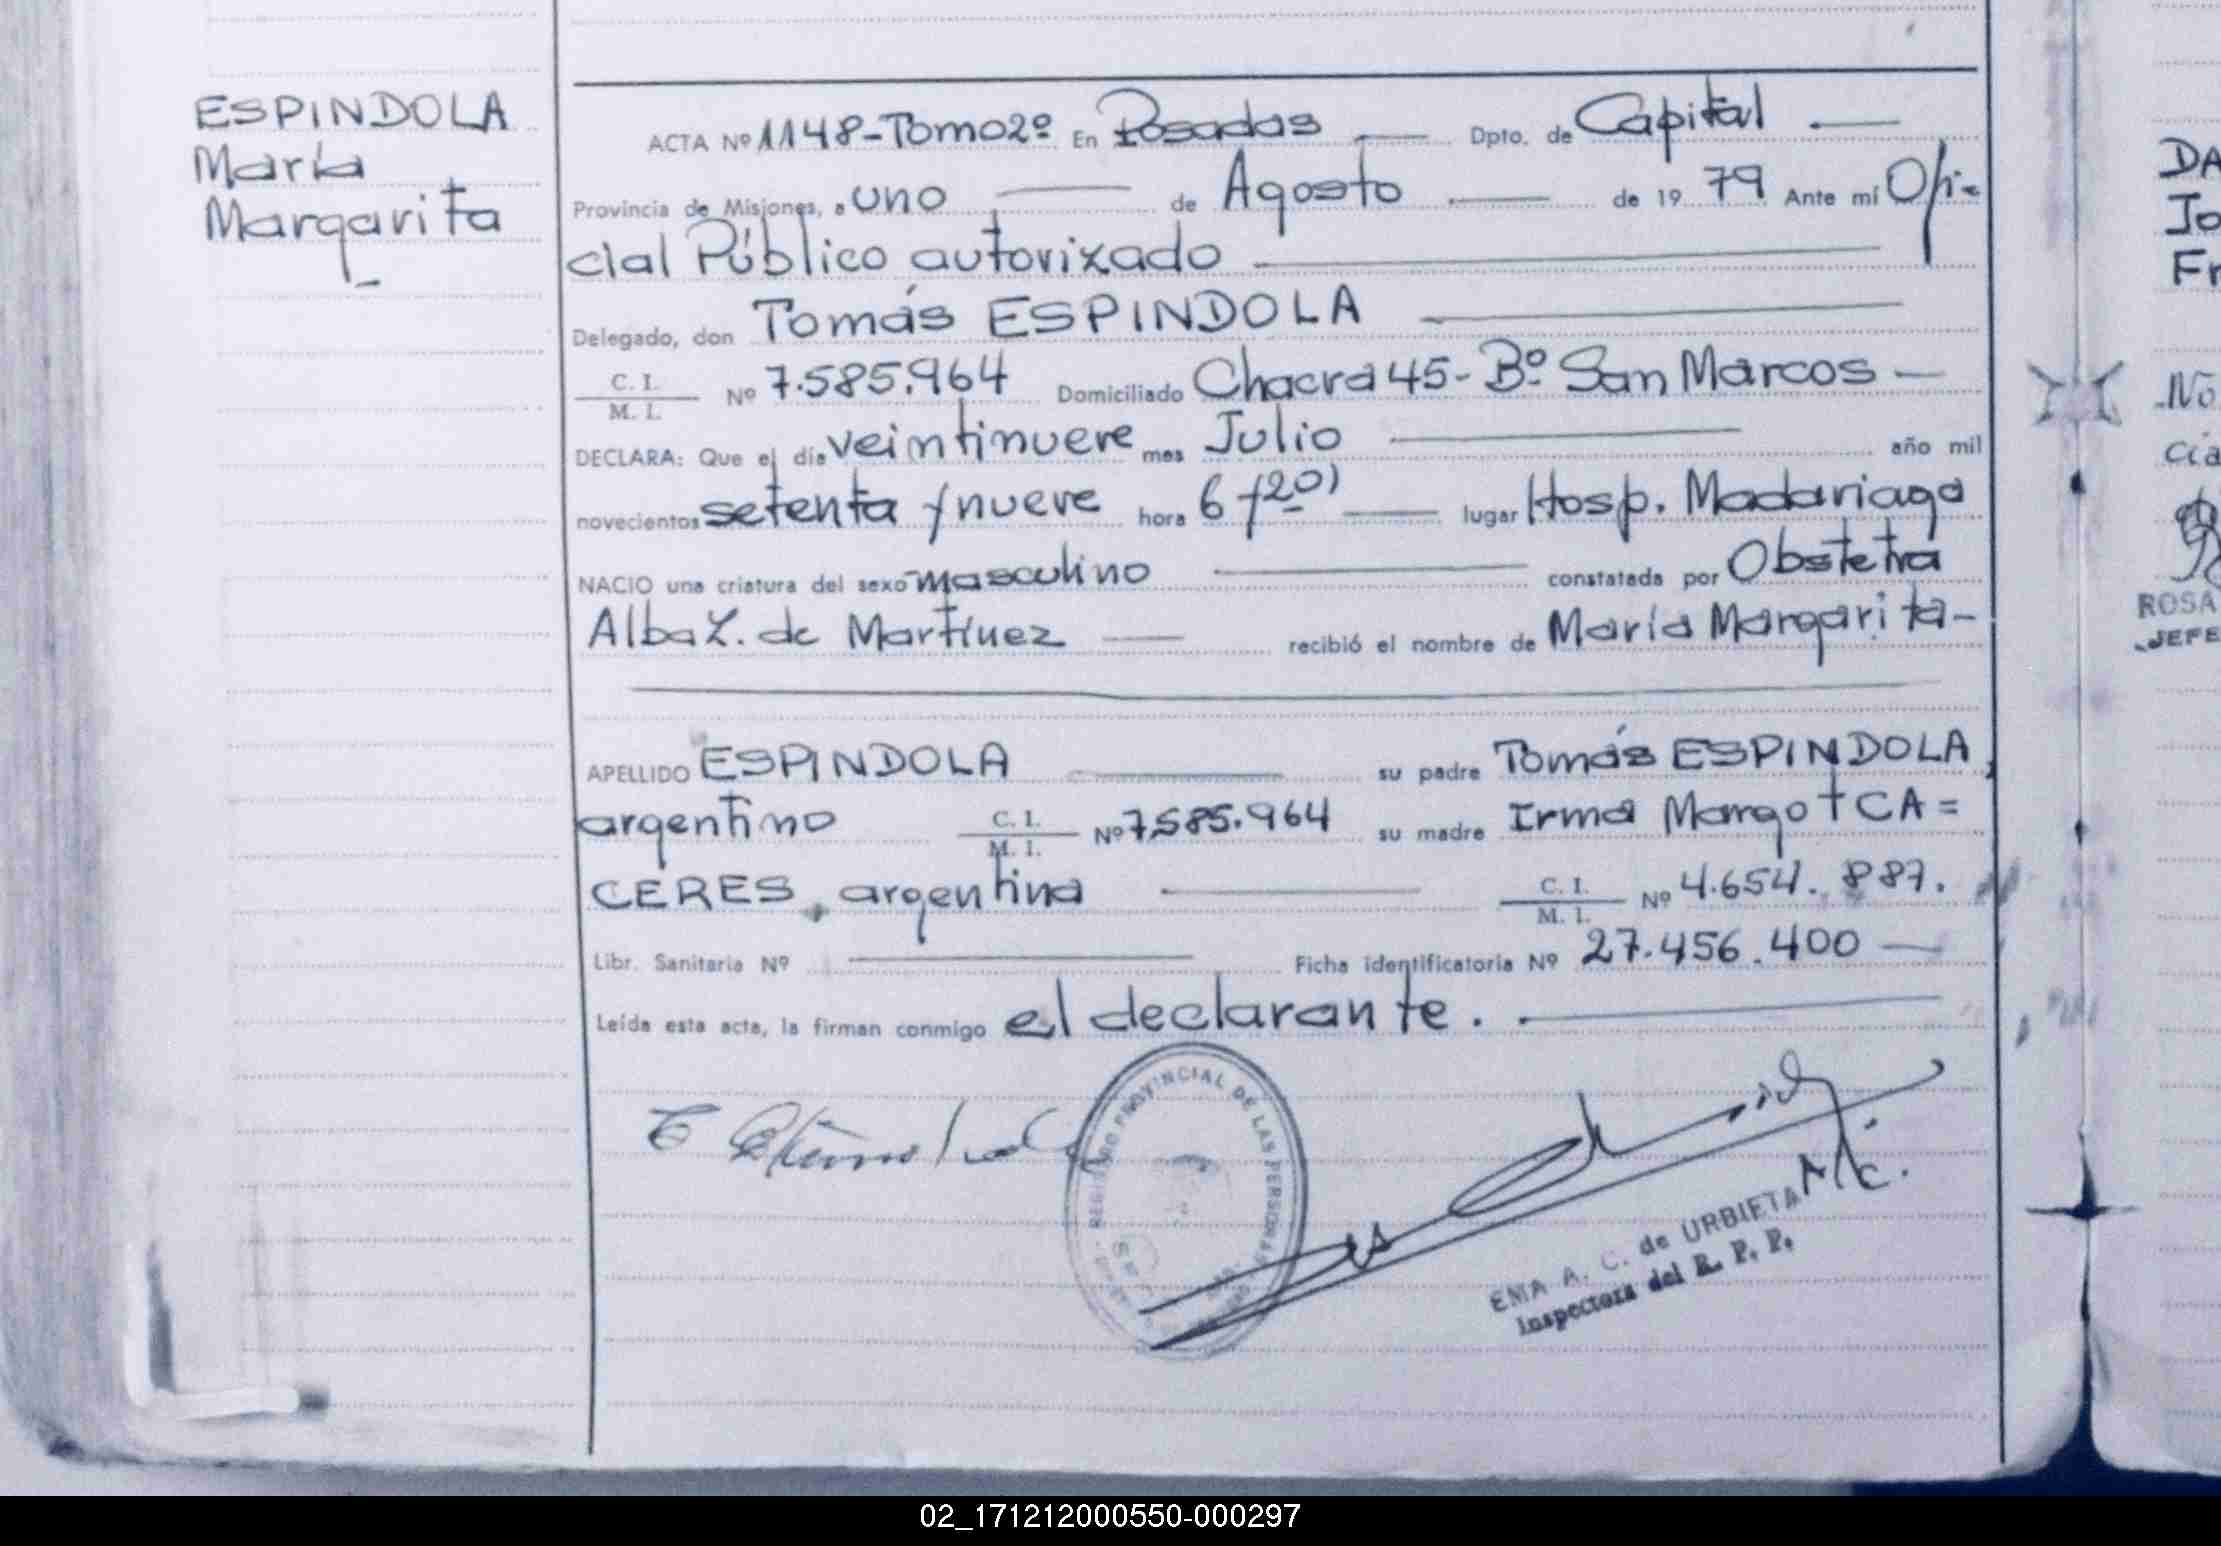 ESPINDOLA
María
Margarita
ACTA Nº 1148-Tomo2º En Posadas Dpto. de Capital
Provincia de Misiones, a uno de Agosto de 19 79 Ante mí Ofi-
cial Público autorizado
Delegado, don Tomás ESPINDOLA
C. I.
M. I. Nº 7.585.964 Domiciliado Chacra 45- Bº San Marcos
DECLARA: Que el día veintinueve mes Julio año mil
novecientos setenta y nueve hora 6 y20) lugar Hosp. Madariaga
NACIO una criatura del sexo masculino constatada por Obstetra
Alba L. de Martínez recibió el nombre de María Margarita-
APELLIDO ESPINDOLA su padre Tomás ESPINDOLA,
argentino C. I.
M. I. Nº 7.585.964 su madre Irma Margot CA=
CERES, argentina C. I.
M. I. Nº 4.654.887.
Libr. Sanitaria Nº Ficha identificatoria Nº 27.456.400
Leída esta acta, la firman conmigo el declarante.
REGISTRO PROVINCIAL DE LAS PERSONAS
EMA A. C. de URBIETA
Inspectora del R. P. P.
DA
Jo
Fr
No
cia
ROSA
JEFE
02_171212000550-000297